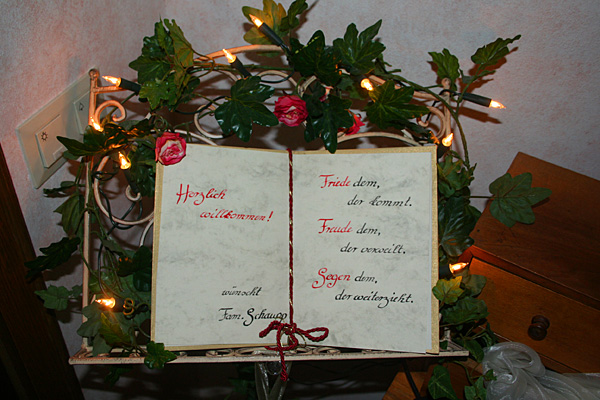 Herzlich
willkommen!
wünscht
Fam. Schaupp
Friede dem,
der kommt.
Freude dem,
der verweilt.
Segen dem,
der weiterzieht.